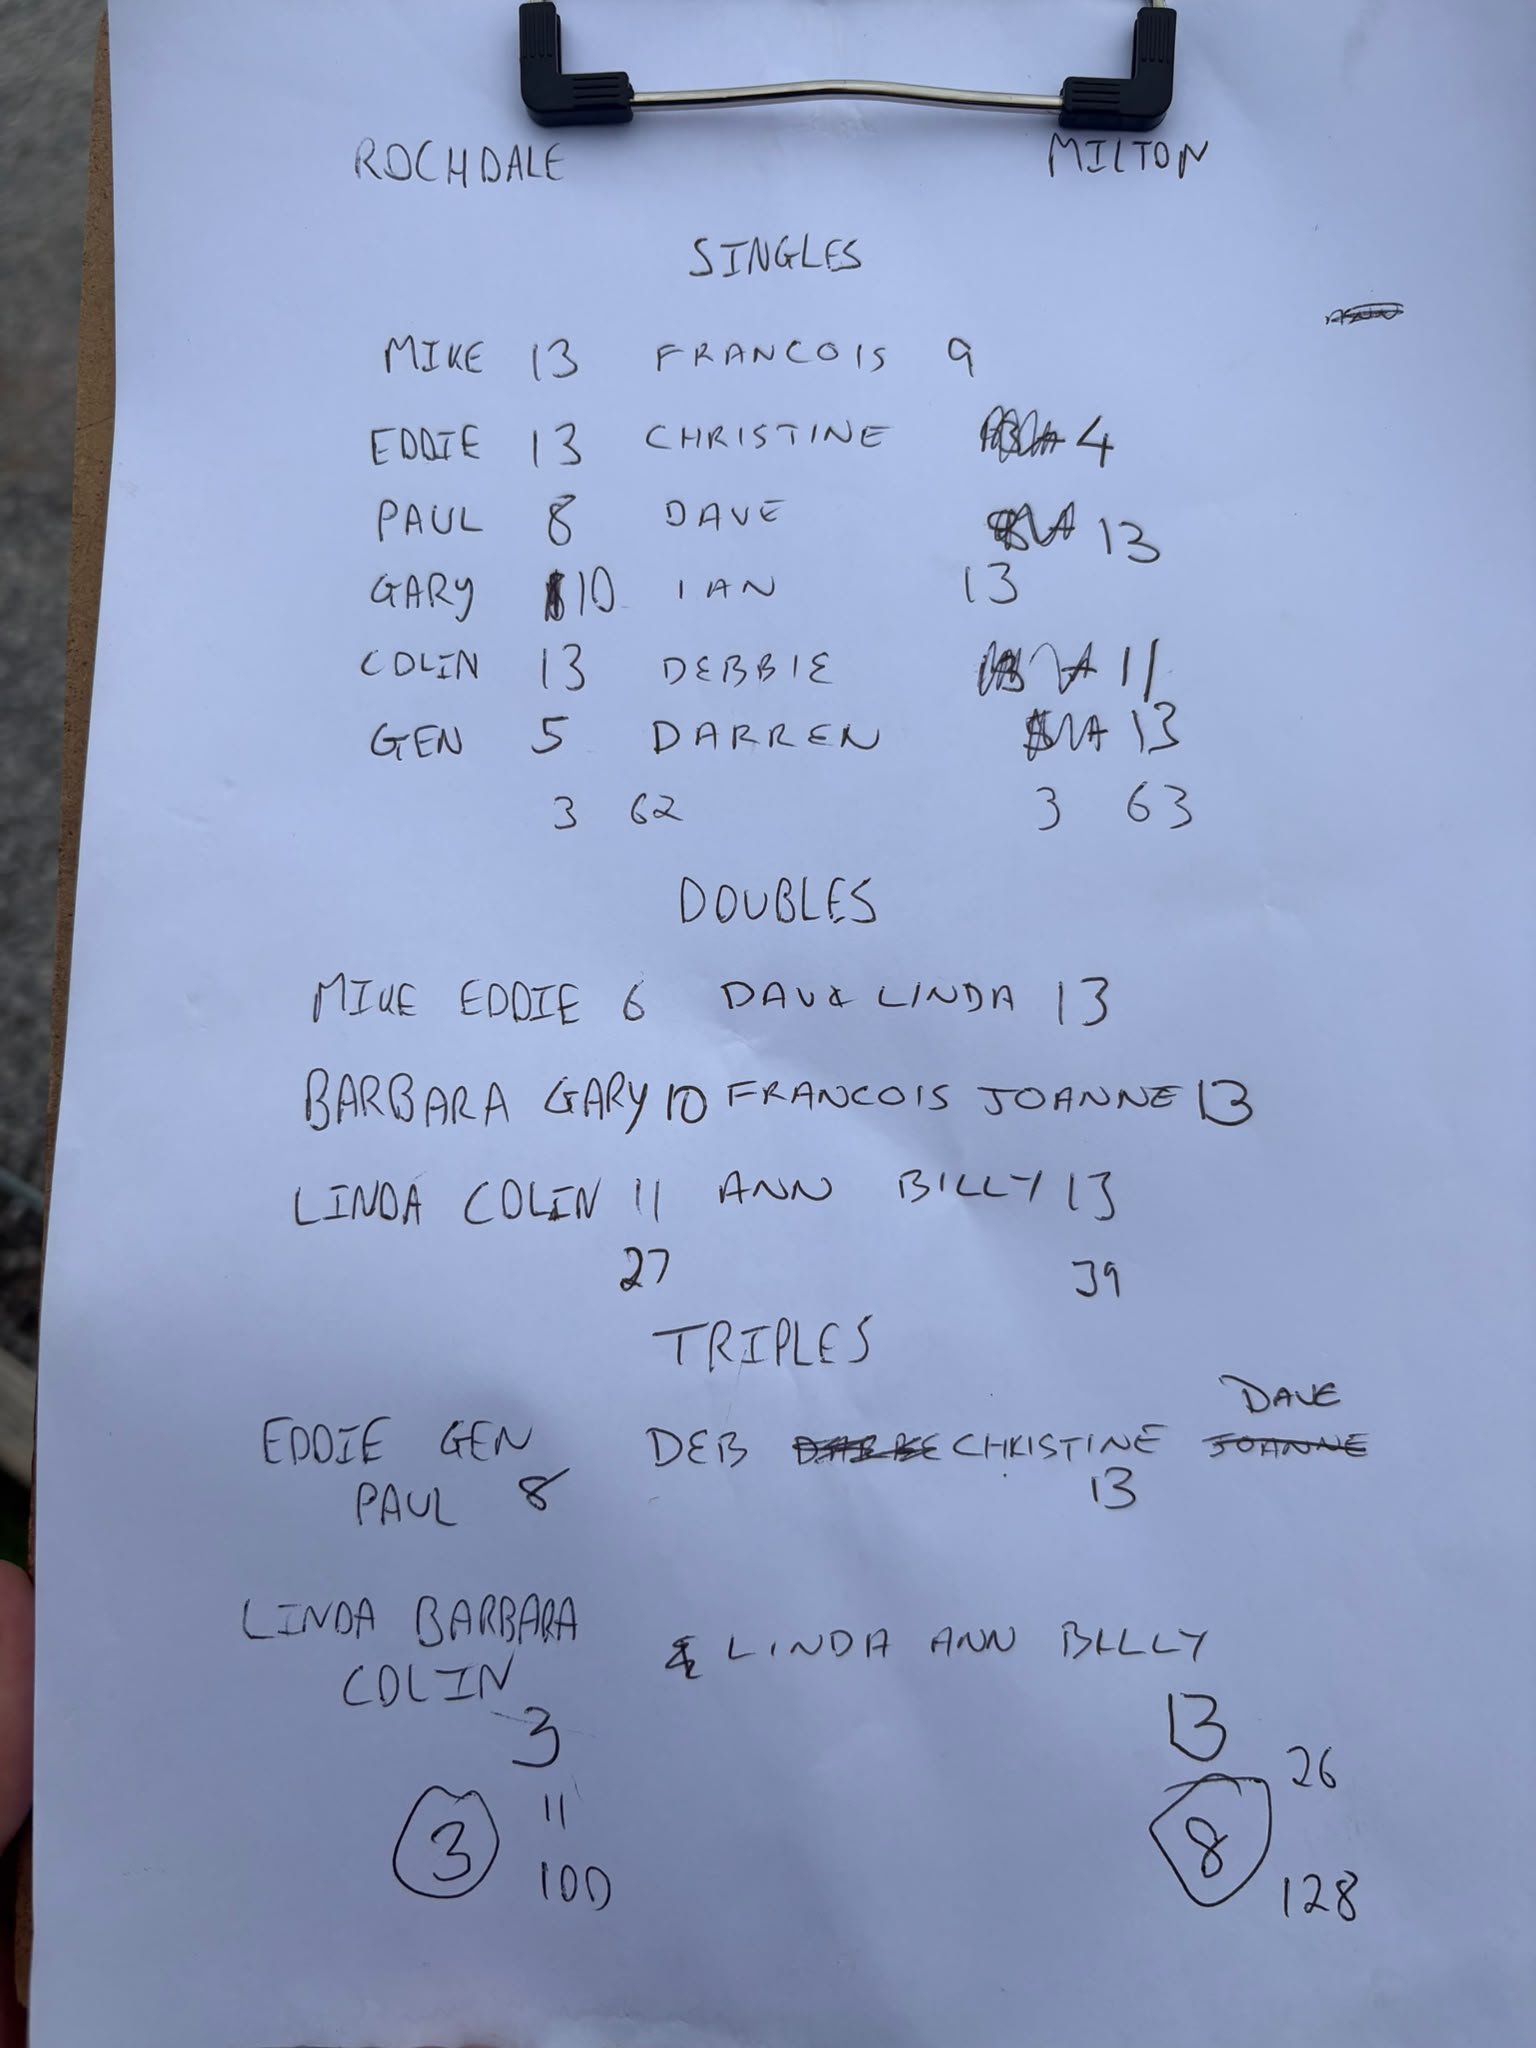 ROCHDALE MILTON
SINGLES
MIKE 13 FRANCOIS 9
EDDIE 13 CHRISTINE 4
PAUL 8 DAVE 13
GARY 10 IAN 13
COLIN 13 DEBBIE 11
GEN 5 DARREN 13
3 62 3 63
DOUBLES
MIKE EDDIE 6 DAVE LINDA 13
BARBARA GARY 10 FRANCOIS JOANNE 13
LINDA COLIN 11 ANN BILLY 13
27 39
TRIPLES
DAVE
EDDIE GEN DEB CHRISTINE JOANNE
PAUL 8 13
LINDA BARBARA LINDA ANN BILLY
COLIN
3 13
11 26
3 8
100 128